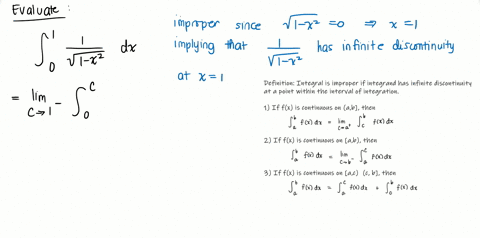 Evaluate :
∫₀¹ 1/√(1-x²) dx
= lim c→1⁻ ∫₀ᶜ
improper since √(1-x²) = 0 ⇒ x = 1
implying that 1/√(1-x²) has infinite discontinuity
at x = 1
Definition: Integral is improper if integrand has infinite discontinuity
at a point within the interval of integration.
1) If f(x) is continuous on (a,b], then
∫ₐᵇ f(x) dx = lim c→a⁺ ∫꜀ᵇ f(x) dx
2) If f(x) is continuous on [a,b), then
∫ₐᵇ f(x) dx = lim c→b⁻ ∫ₐᶜ f(x) dx
3) If f(x) is continuous on [a,c) (c, b], then
∫ₐᵇ f(x) dx = ∫ₐᶜ f(x) dx + ∫꜀ᵇ f(x) dx